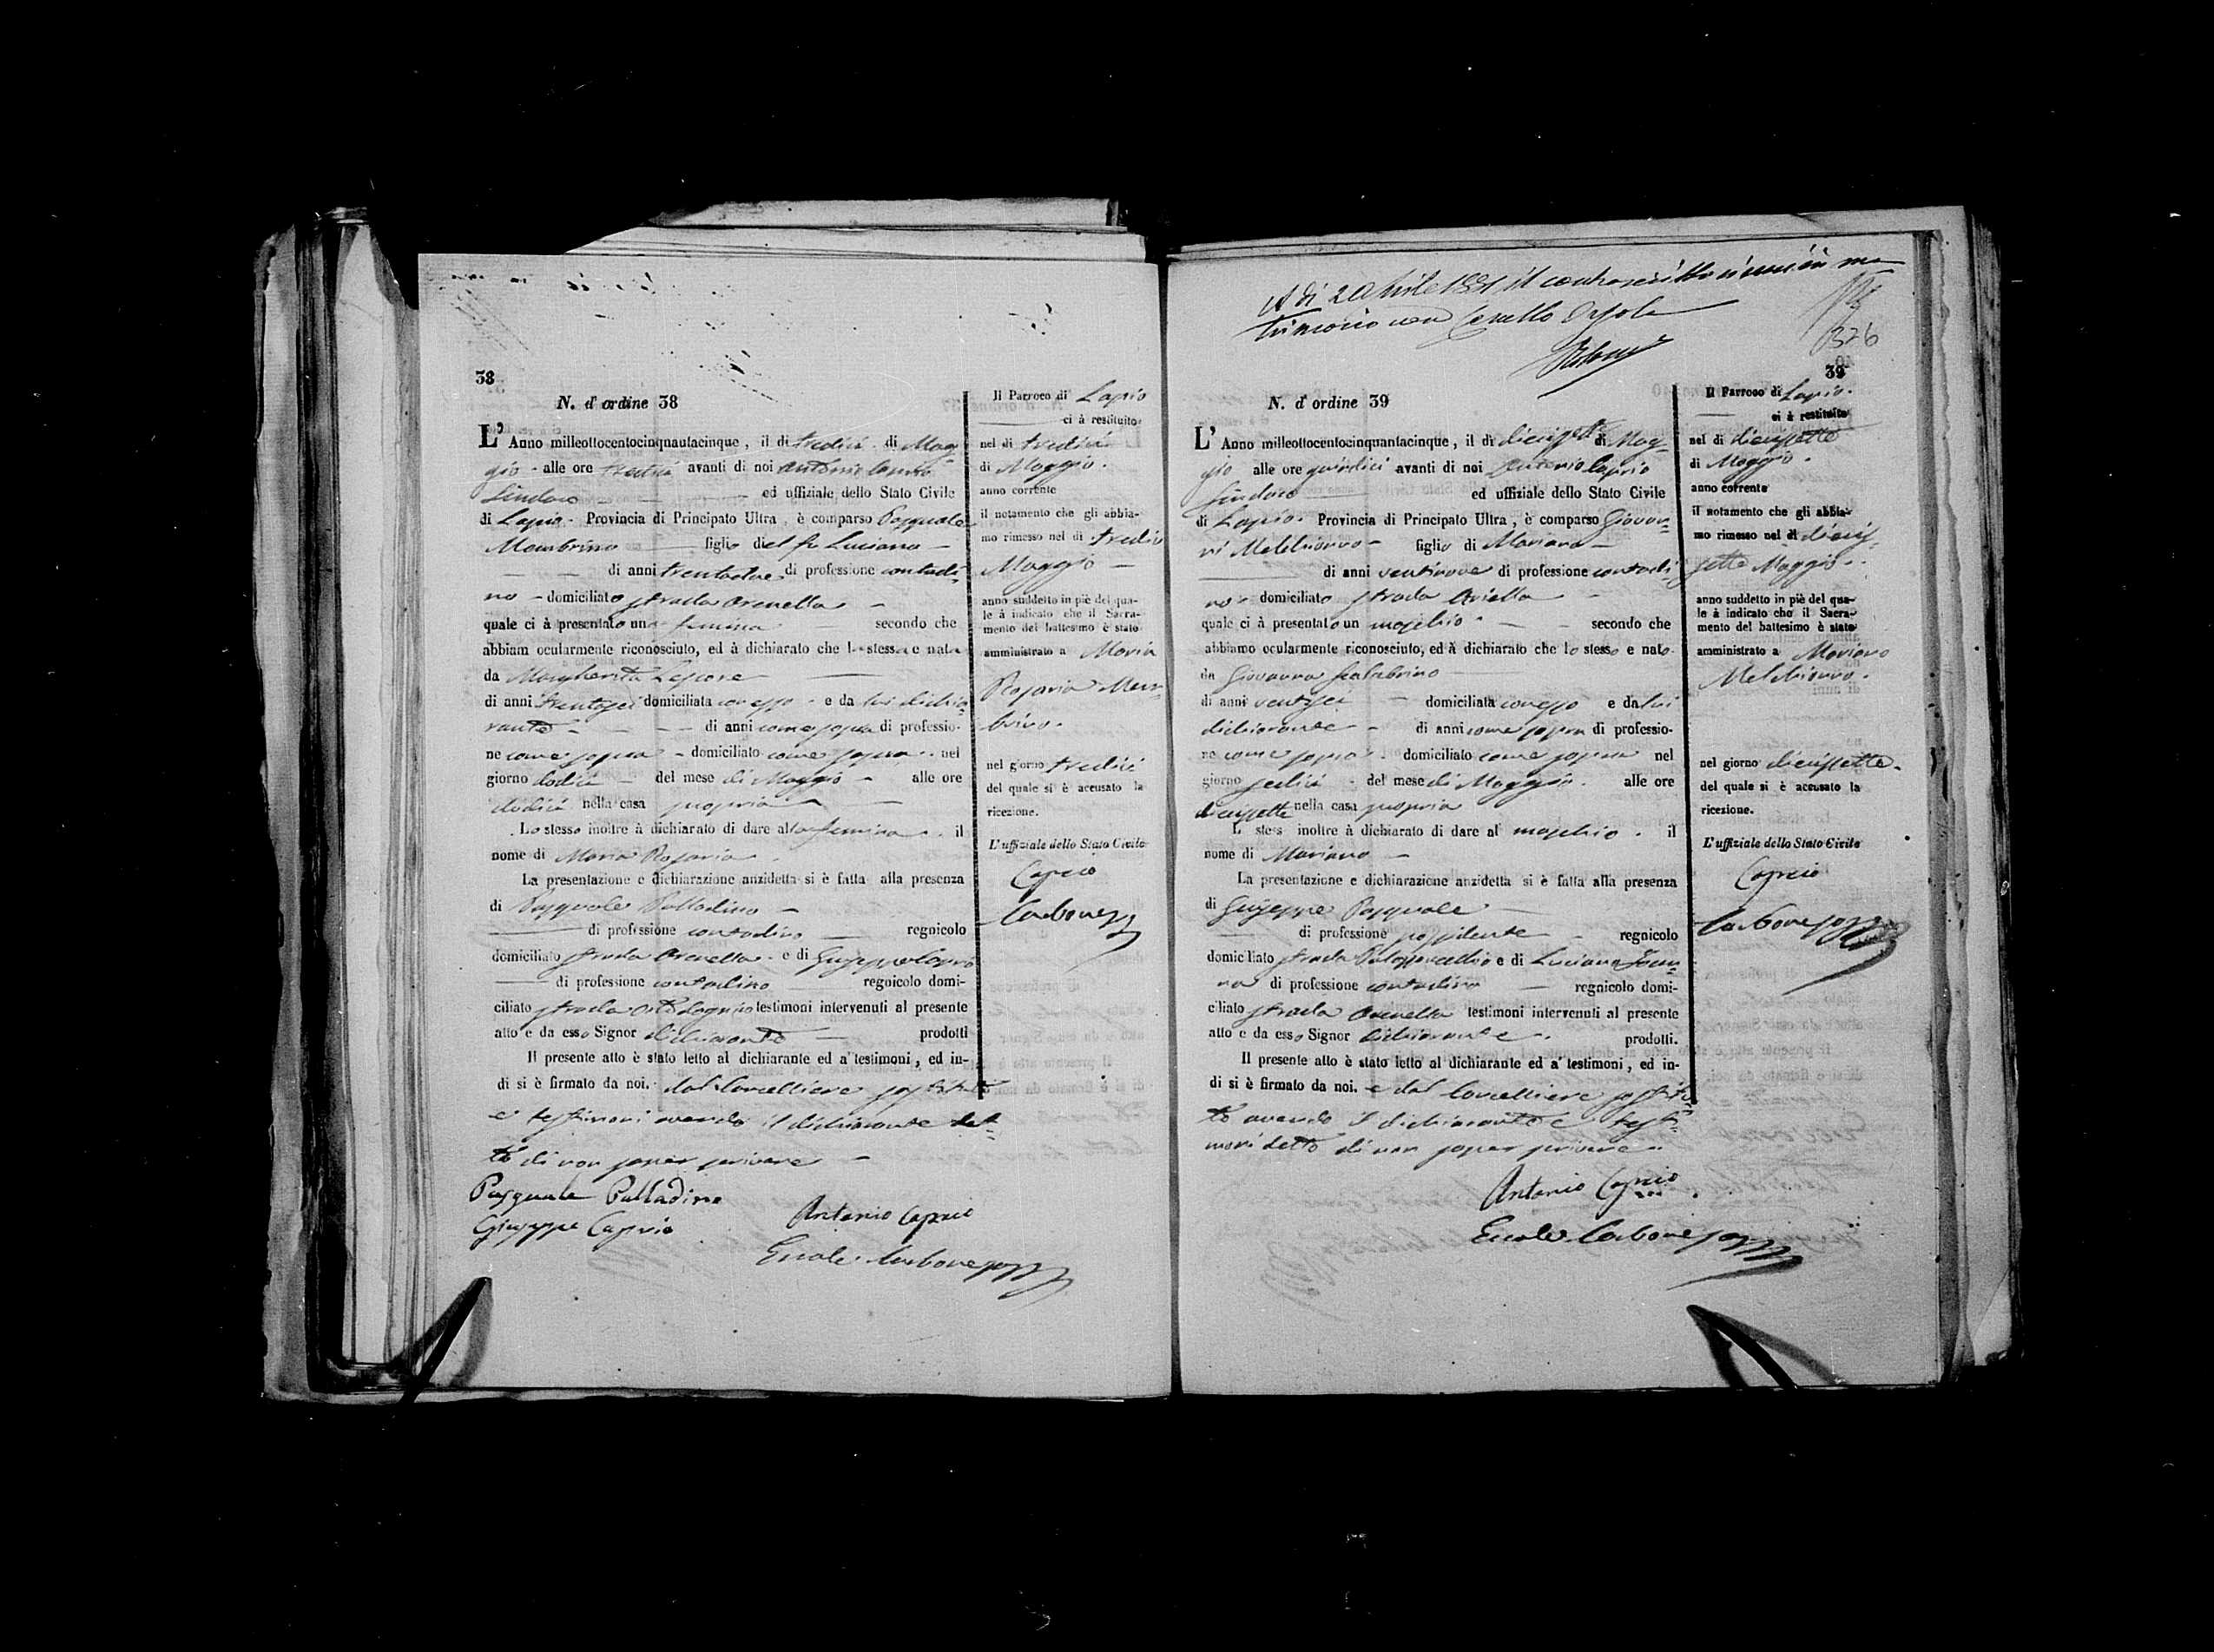 38
N. d' ordine 38
L' Anno milleottocentocinquantacinque, il dì tredici di Mag-
gio alle ore tredici avanti di noi Antonio Caprio
Sindaco ed uffiziale dello Stato Civile
di Lapio Provincia di Principato Ultra, è comparso Pasquale
Mombrino figlio del fu Luciano
di anni trentadue di professione contadi-
no domiciliato strada Arenella
quale ci à presentato una femina secondo che
abbiam ocularmente riconosciuto, ed à dichiarato che la stessa e nata
da Margherita
di anni trentasei domiciliata con esso e da lui dichia-
rante di anni come sopra di professio-
ne come sopra domiciliato come sopra nel
giorno dodici del mese di Maggio alle ore
dodici nella casa propria
Lo stesso inoltre à dichiarato di dare alla femina il
nome di Maria Rosaria
La presentazione e dichiarazione anzidetta si è fatta alla presenza
di Pasquale Palladino
di professione contadino regnicolo
domiciliato strada Arenella e di Giuseppe Caprio
di professione contadino regnicolo domi-
ciliato strada testimoni intervenuti al presente
atto e da esso Signor dichiarante prodotti
Il presente atto è stato letto al dichiarante ed a' testimoni, ed in-
di si è firmato da noi. dal Cancelliere
e testimoni avendo il dichiarante det-
to di non saper scrivere
Pasquale Palladino
Giuseppe Caprio
Antonio Caprio
Ercole Carbone
Il Parroco di Lapio
ci à restituito
nel dì tredici
di Maggio
anno corrente
il notamento che gli abbia-
mo rimesso nel dì tredici
Maggio
anno suddetto in piè del qua-
le à indicato che il Sacra-
mento del battesimo è stato
amministrato a Maria
Rosaria Mom-
brino.
nel giorno tredici
del quale si è accusato la
ricezione.
L' uffiziale dello Stato Civile
Caprio
Carbone
A dì 2 Aprile 1881 il controscritto si unì in ma
trimonio con Orsola
376
39
N. d' ordine 39
L' Anno milleottocentocinquantacinque, il dì diecisette di Mag-
gio alle ore quindici avanti di noi Antonio Caprio
Sindaco ed uffiziale dello Stato Civile
di Lapio. Provincia di Principato Ultra, è comparso Giovan-
ni Melchionno figlio di Mariano
di anni ventinove di professione contadi-
no domiciliato strada Ariella
quale ci à presentato un maschio secondo che
abbiamo ocularmente riconosciuto, ed à dichiarato che lo stesso e nato
da Giovanna Scalabrino
di anni ventisei domiciliata con esso e da lui
dichiarante di anni come sopra di professio-
ne come sopra domiciliato come sopra nel
giorno sedici del mese di Maggio. alle ore
diecisette nella casa propria
L stess inoltre à dichiarato di dare al maschio. il
nome di Mariano
La presentazione e dichiarazione anzidetta si è fatta alla presenza
di Giuseppe Pasquale
di professione possidente regnicolo
domiciliato strada e di Luciano
di professione contadino regnicolo domi-
ciliato strada Arenella testimoni intervenuti al presente
atto e da esso Signor dichiarante. prodotti.
Il presente atto è stato letto al dichiarante ed a' testimoni, ed in-
di si è firmato da noi. e dal Cancelliere sostitu-
to avendo il dichiarante e testi-
moni detto di non saper scrivere.
Antonio Caprio
Ercole Carbone
Il Parroco di Lapio.
ci à restituito
nel dì diecisette
di Maggio.
anno corrente
il notamento che gli abbia-
mo rimesso nel dì diecis-
sette Maggio.
anno suddetto in piè del qua-
le à indicato che il Sacra-
mento del battesimo è stato
amministrato a Mariano
Melchionno.
nel giorno diecissette.
del quale si è accusato la
ricezione.
L' uffiziale dello Stato Civile
Caprio
Carbone